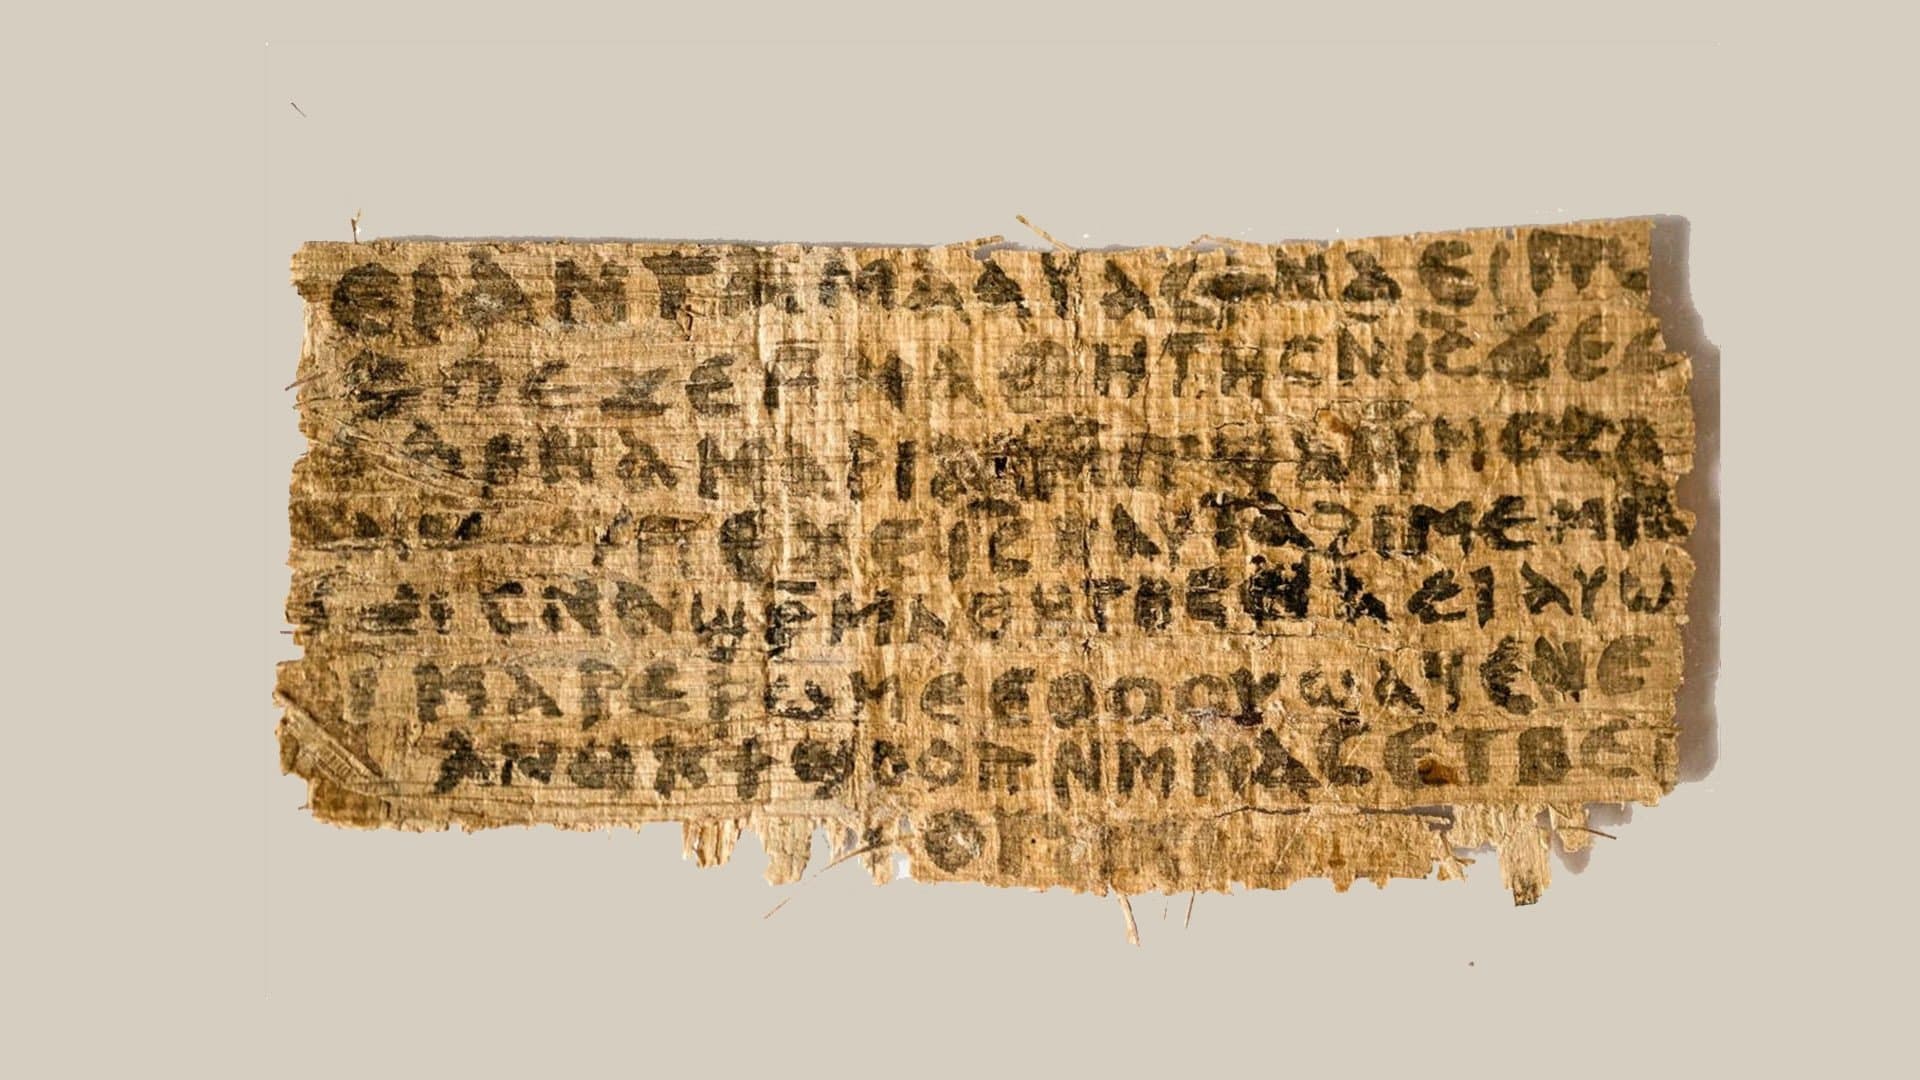 ⲉⲓ ⲁⲛ ⲧⲁⲙⲁⲁⲩ ⲁⲥϯ ⲛⲁⲉⲓ ⲡ
ⲥ ⲡⲉϫⲉ ⲙⲙⲁⲑⲏⲧⲏⲥ ⲛⲓ̅ⲥ̅ ϫⲉ ⲥ
ⲁⲣⲛⲁ ⲙⲁⲣⲓⲁⲙ ⲙⲡϣⲁ ⲙⲙⲟⲥ ⲁ
ⲡⲉϫⲉ ⲓ̅ⲥ̅ ⲛⲁⲩ ⲧⲁϩⲓⲙⲉ ⲙⲛ
ⲥⲛⲁϣⲣ̅ⲙⲁⲑⲏⲧⲏⲥ ⲛⲁⲉⲓ ⲁⲩⲱ
ⲓ ⲙⲁⲣⲉⲣⲱⲙⲉ ⲉⲑⲟⲟⲩ ϣⲁϥⲉⲛⲉ
ⲁⲛⲟⲕ ϯϣⲟⲟⲡ ⲛⲙⲙⲁⲥ ⲉⲧⲃⲉ ⲡ